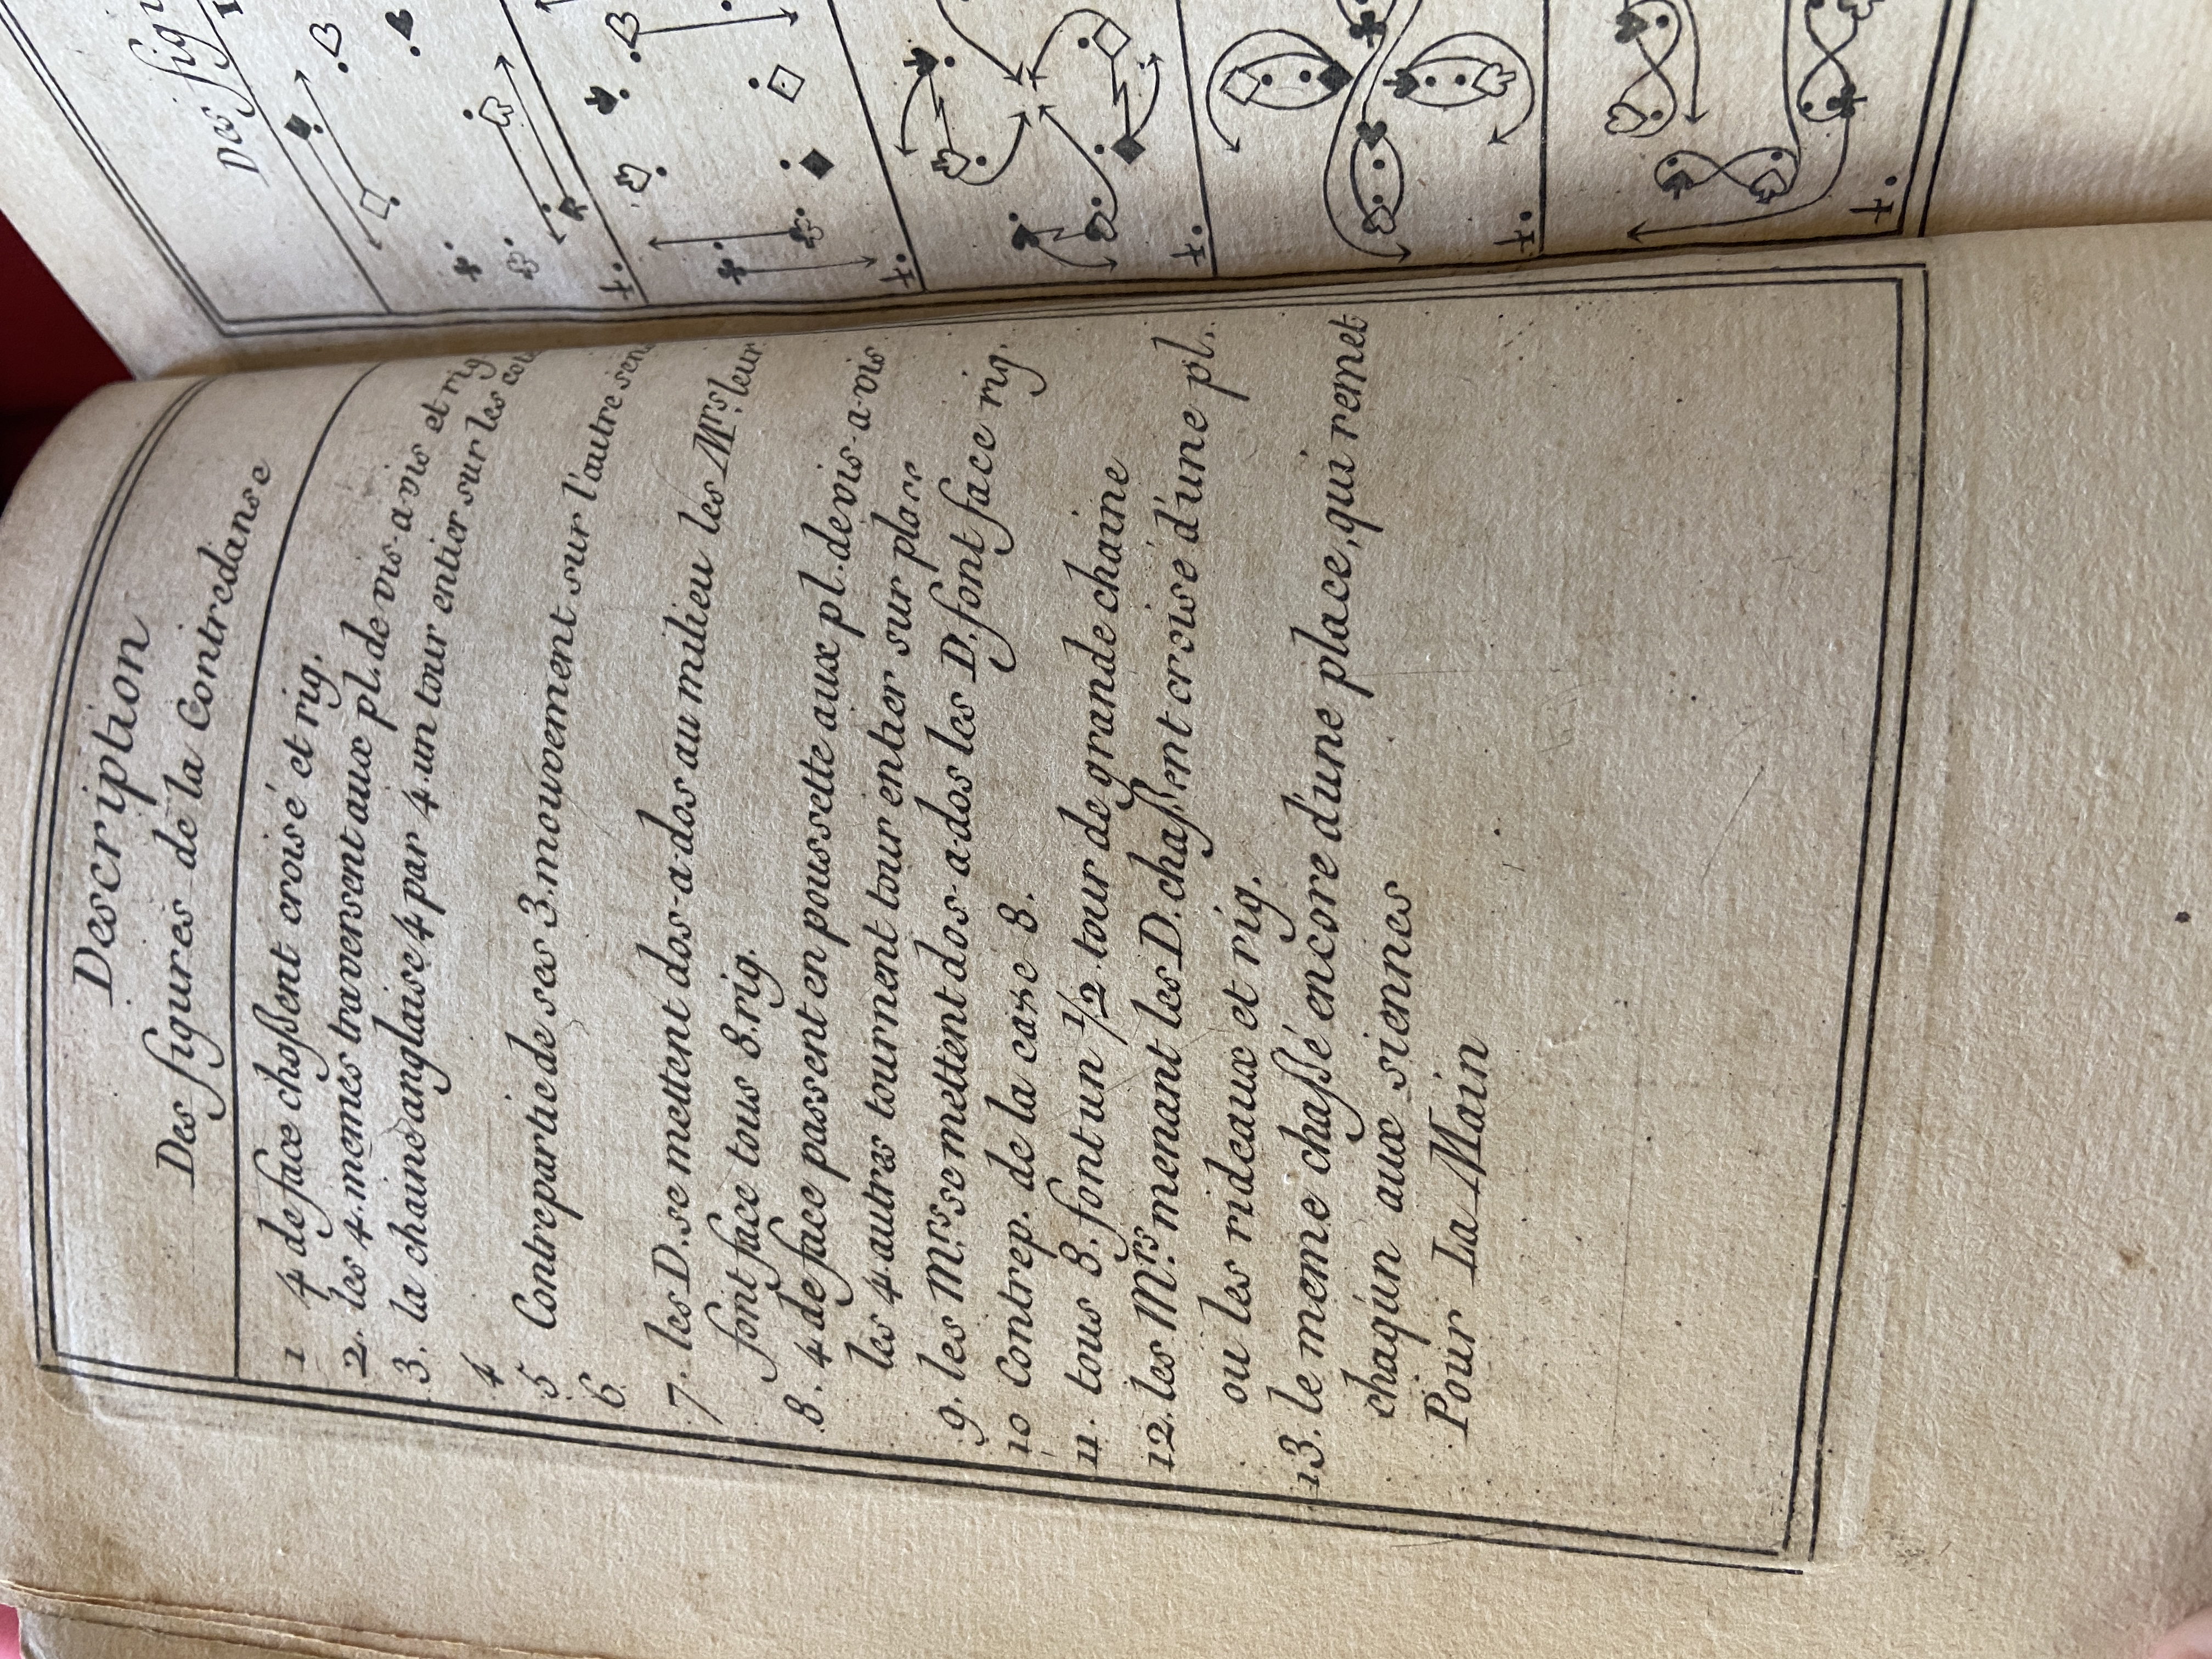 Description
Des figures de la Contredanse
1 4 de face chassent croisé et rig.
2. les 4. memes traversent aux pl. de vis-a-vis et rig
3. la chaine anglaise 4 par 4. un tour entier sur les
4
5 Contrepartie de ses 3. mouvement sur l'autre
6.
7. les D. se mettent dos-a-dos au milieu les Mrs. leur
font face tous 8. rig.
8. 4 de face passent en poussette aux pl. de vis-a-vis
les 4 autres tournent tour entier sur place
9. les Mrs. se mettent dos-a-dos les D. font face rig.
10 Contrep. de la case 8.
11. tous 8. font un 1/2 tour de grande chaine
12. les Mrs. menant les D. chassent croisé d'une pl.
ou les rideaux et rig.
13. le meme chassé encore d'une place, qui remet
chaq'un aux siennes
Pour La Main
Des